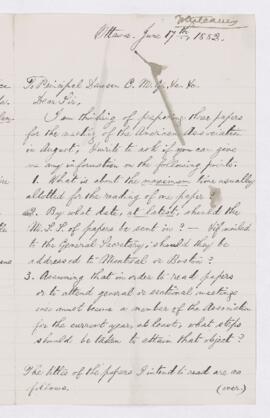 Ottawa. June 17th 1882.
To Principal Dawson C. M. G. &c. &c.
Dear Sir,
I am thinking of preparing three papers
for the meeting of the American Association
in August, & write to ask if you can give
me any information on the following points:
1. What is about the maximum time usually
allotted for the reading of one paper?
2. By what date, at latest, should the
M.S.S. of papers be sent in? — If mailed
to the General Secretary, should they be
addressed to Montreal or Boston?
3. Assuming that in order to read papers
or to attend general or sectional meetings
one must become a member of the Association
for the current year, at least, what steps
should be taken to attain that object?
The titles of the papers I intend to read are as
follows.
(over.)